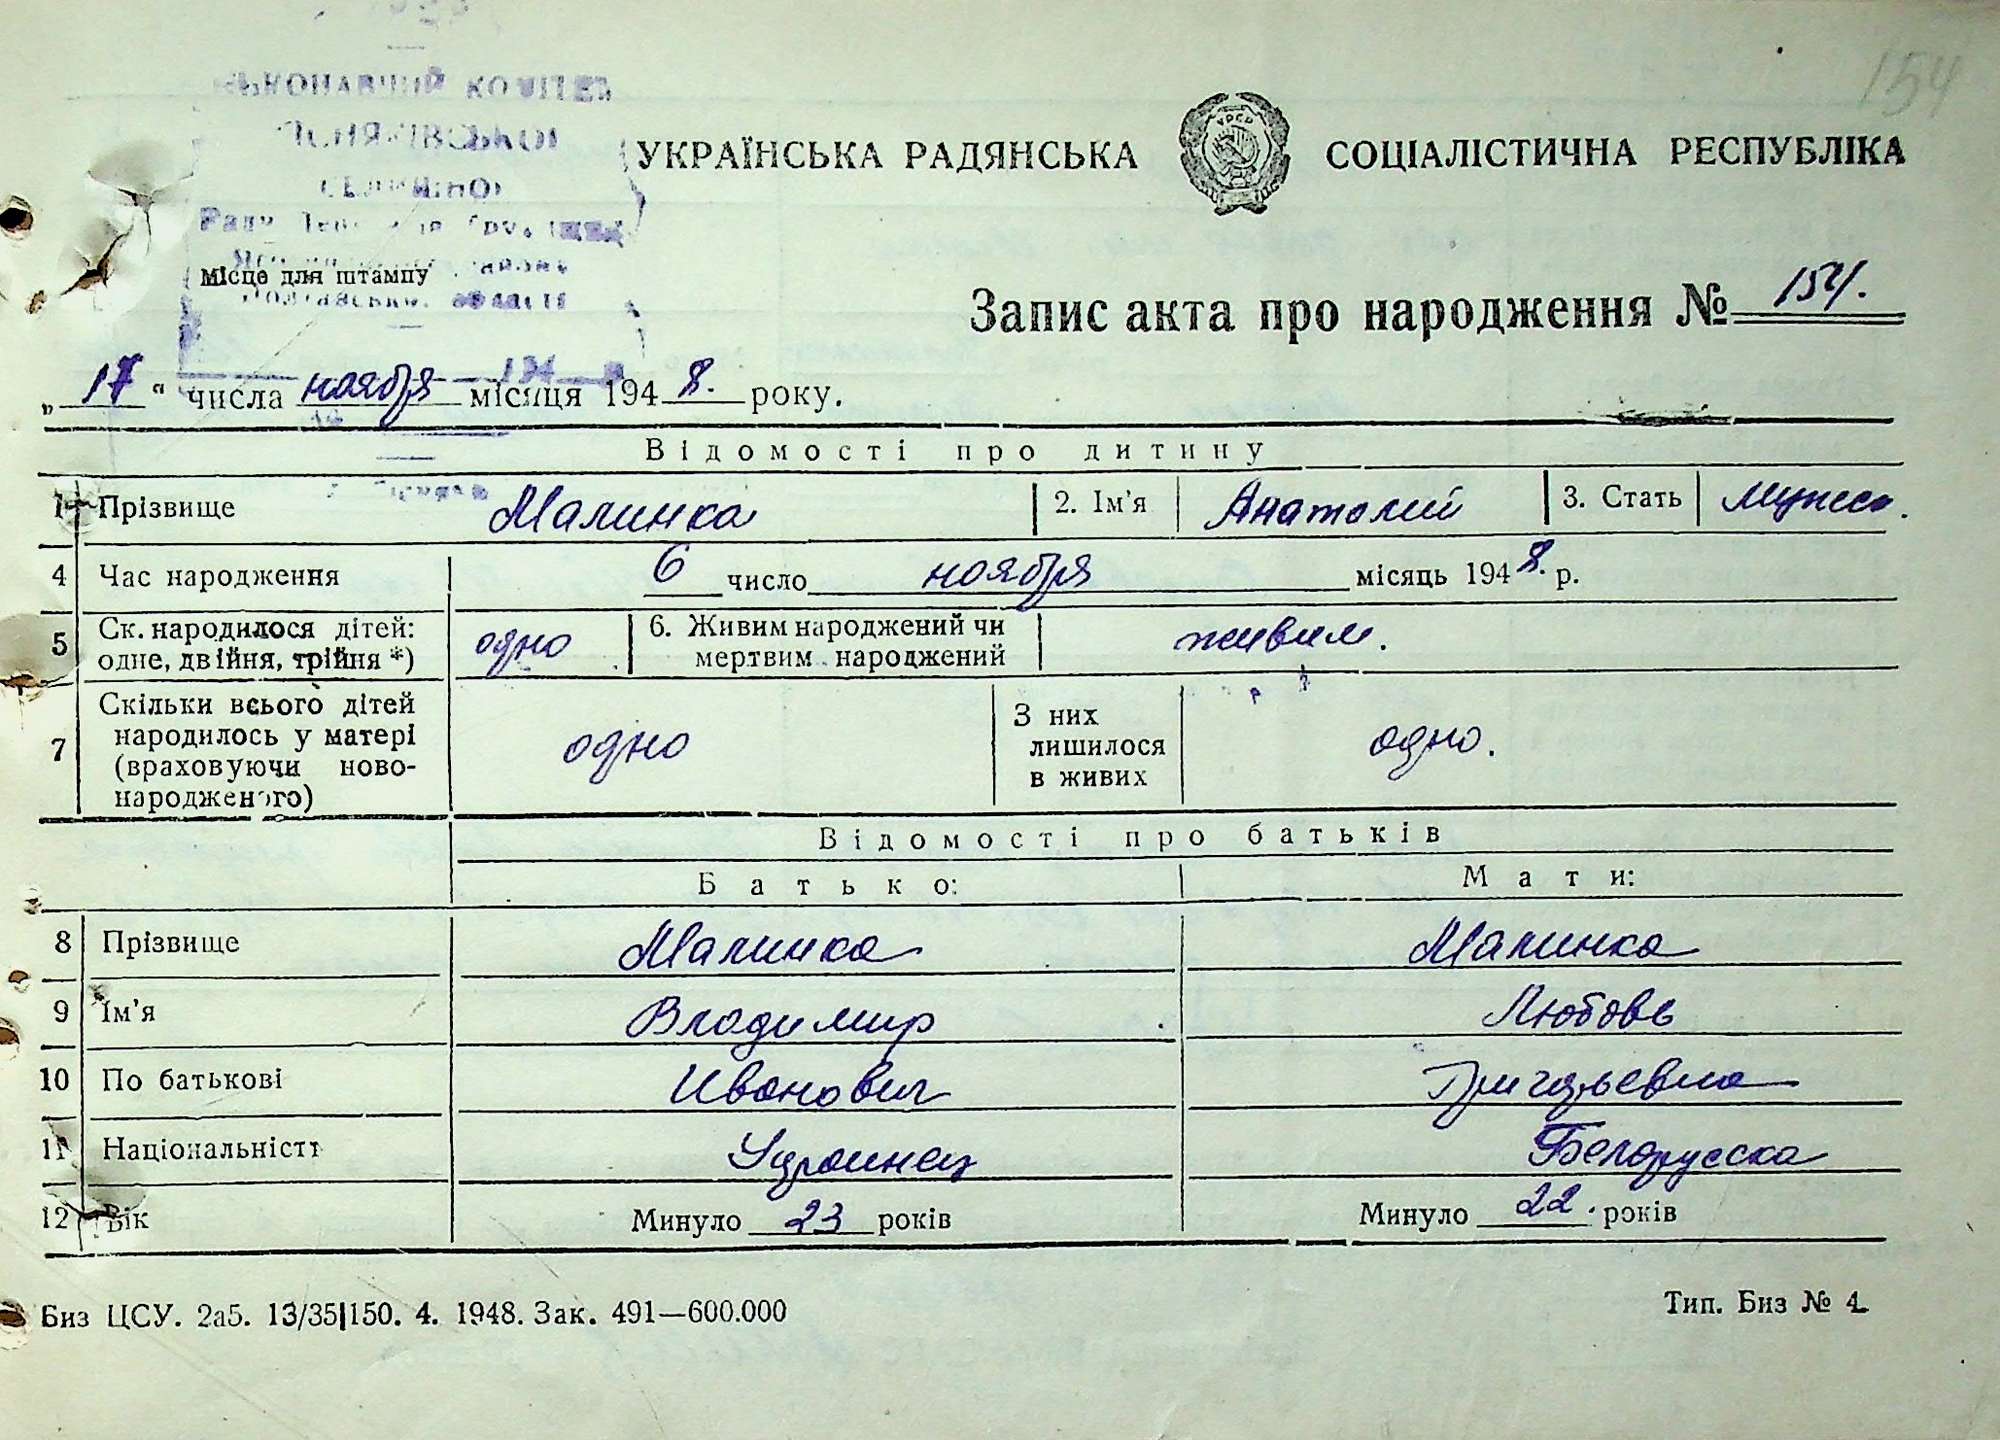 154
КОМІТЕТ
УКРАЇНСЬКА РАДЯНСЬКА СОЦІАЛІСТИЧНА РЕСПУБЛІКА
УРСР
Місце для штампу
Запис акта про народження № 154.
„17“ числа ноября місяця 1948. року.
Відомості про дитину
1 Прізвище Малинка 2. Ім'я Анатолий 3. Стать мужск.
4 Час народження 6 число ноября місяць 1948. р.
5 Ск. народилося дітей: одне, двійня, трійня *) одно 6. Живим народжений чи мертвим народжений живим.
7 Скільки всього дітей народилось у матері (враховуючи ново-народженого) одно З них лишилося в живих одно.
Відомості про батьків
Батько: Мати:
8 Прізвище Малинка Малинка
9 Ім'я Владимир Любовь
10 По батькові Иванович Григорьевна
11 Національність Украинец Белорусска
12 Вік Минуло 23 років Минуло 22. років
Биз ЦСУ. 2а5. 13/35|150. 4. 1948. Зак. 491—600.000 Тип. Биз № 4